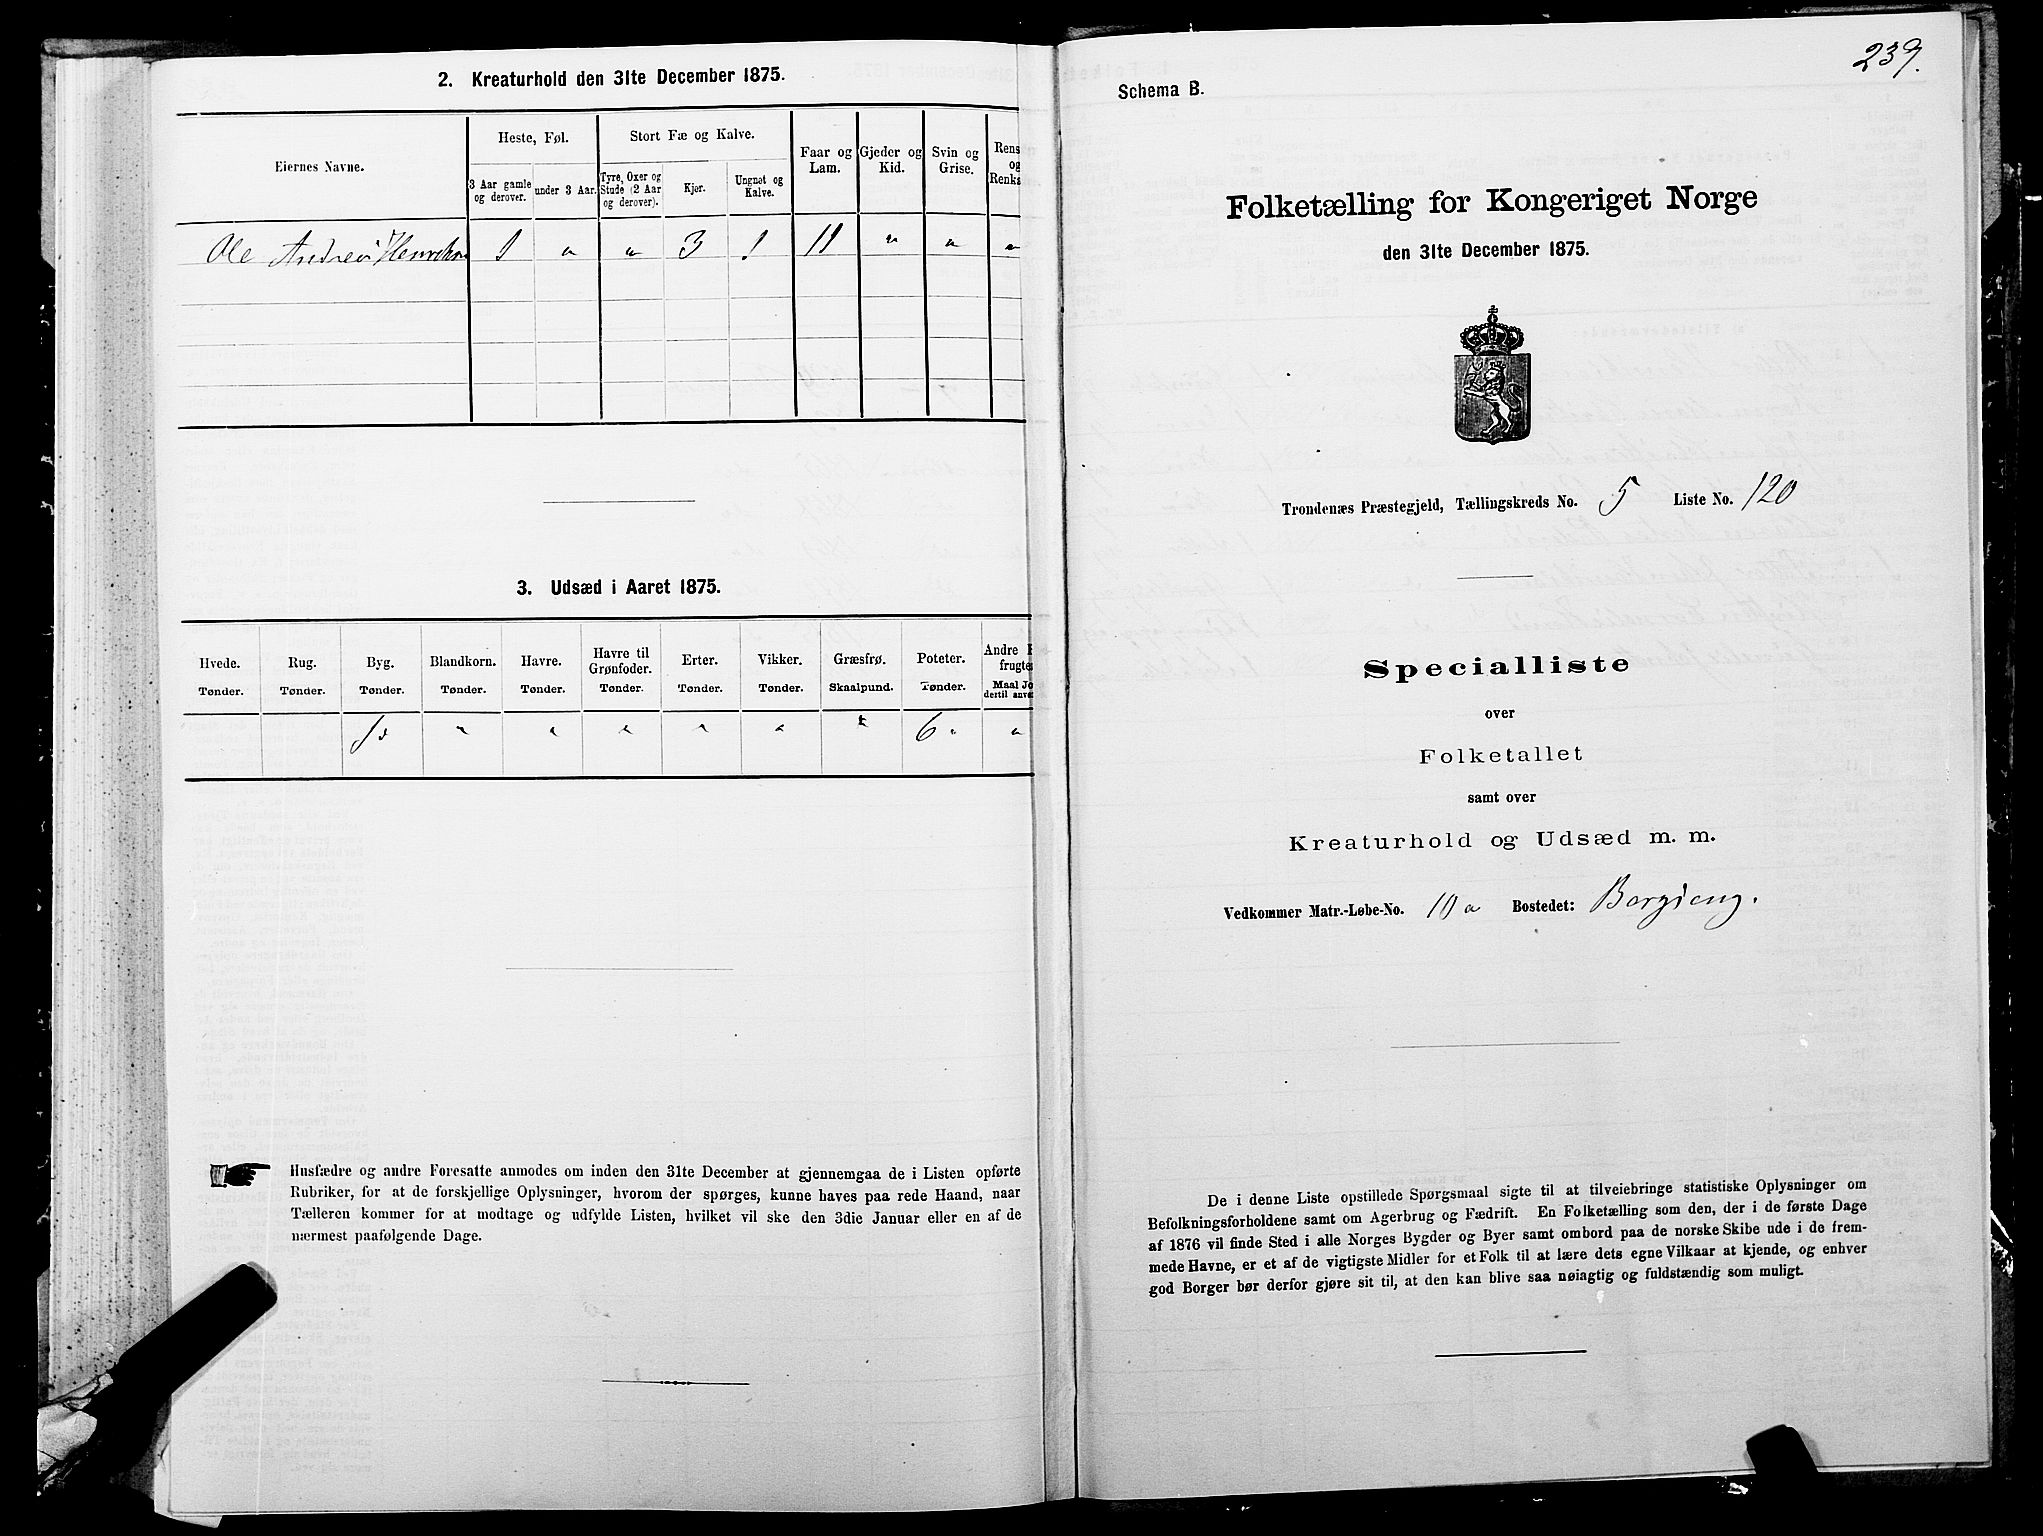 2. Kreaturhold den 31te December 1875.
Eiernes Navne.
Heste, Føl.
3 Aar gamle og derover.
under 3 Aar.
Stort Fæ og Kalve.
Tyre, Oxer og Stude (2 Aar og derover).
Kjør.
Ungnøt og Kalve.
Faar og Lam.
Gjeder og Kid.
Svin og Grise.
Rens
og
Renk
Ole 1 " " 3 1 11 " " "
3. Udsæd i Aaret 1875.
Hvede. Tønder.
Rug. Tønder.
Byg. Tønder.
Blandkorn. Tønder.
Havre. Tønder.
Havre til Grønfoder. Tønder.
Erter. Tønder.
Vikker. Tønder.
Græsfrø. Skaalpund.
Poteter. Tønder.
Andre
frugte
Maal Jo
dertil anve
" " " " " " 6 " "
Husfædre og andre Foresatte anmodes om inden den 31te December at gjennemgaa de i Listen opførte
Rubriker, for at de forskjellige Oplysninger, hvorom der spørges, kunne haves paa rede Haand, naar
Tælleren kommer for at modtage og udfylde Listen, hvilket vil ske den 3die Januar eller en af de
nærmest paafølgende Dage.
239.
Schema B.
Folketælling for Kongeriget Norge
den 31te December 1875.
Trondenæs Præstegjeld, Tællingskreds No. 5 Liste No. 120
Specialliste
over
Folketallet
samt over
Kreaturhold og Udsæd m. m.
Vedkommer Matr.-Løbe-No. 10a Bostedet: Borgieng.
De i denne Liste opstillede Spørgsmaal sigte til at tilveiebringe statistiske Oplysninger om
Befolkningsforholdene samt om Agerbrug og Fædrift. En Folketælling som den, der i de første Dage
af 1876 vil finde Sted i alle Norges Bygder og Byer samt ombord paa de norske Skibe ude i de frem-
mede Havne, er et af de vigtigste Midler for et Folk til at lære dets egne Vilkaar at kjende, og enhver
god Borger bør derfor gjøre sit til, at den kan blive saa nøiagtig og fuldstændig som muligt.